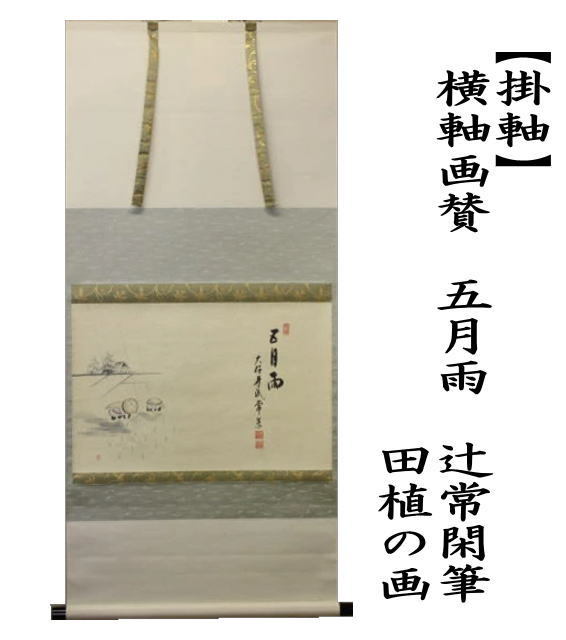 【掛軸】
横軸画賛 五月雨 辻常閑筆
田植の画
五月雨